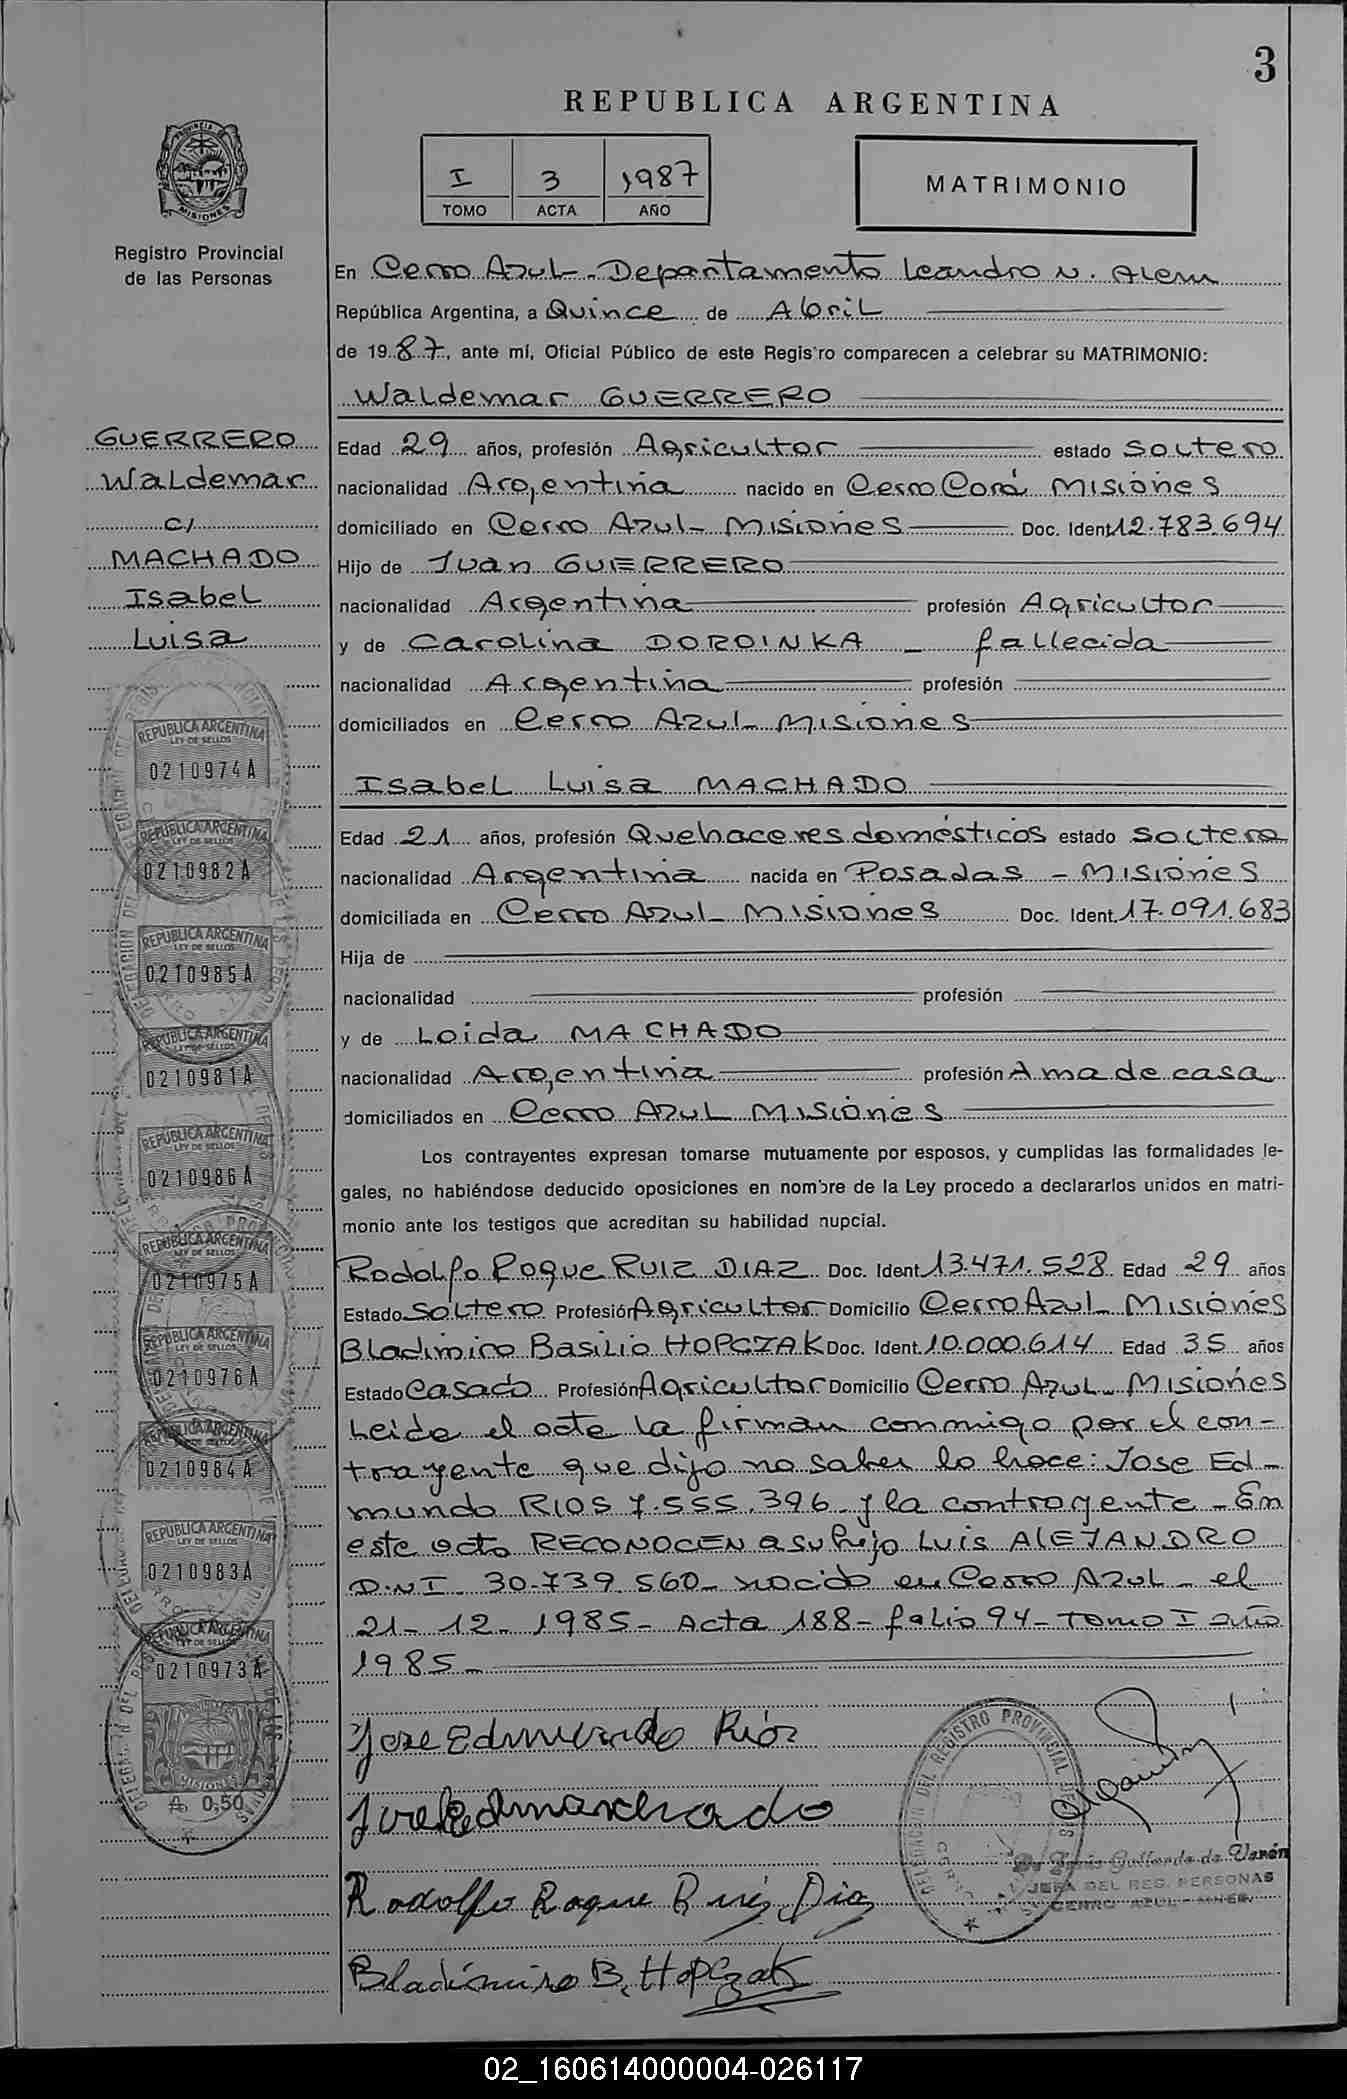 3
REPUBLICA ARGENTINA
PROVINCIA DE
MISIONES
Registro Provincial
de las Personas
I 3 1987
TOMO ACTA AÑO
MATRIMONIO
En Cerro Azul - Departamento Leandro N. Alem
República Argentina, a Quince de Abril
de 1987, ante mí, Oficial Público de este Registro comparecen a celebrar su MATRIMONIO:
Waldemar GUERRERO
GUERRERO
Waldemar
c/
MACHADO
Isabel
Luisa
Edad 29 años, profesión Agricultor estado Soltero
nacionalidad Argentina nacido en Cerro Corá Misiones
domiciliado en Cerro Azul - Misiones Doc. Ident. 12.783.694
Hijo de Juan GUERRERO
nacionalidad Argentina profesión Agricultor
y de Carolina DOROINKA - fallecida
nacionalidad Argentina profesión
domiciliados en Cerro Azul - Misiones
Isabel Luisa MACHADO
Edad 21 años, profesión Quehaceres domésticos estado soltera
nacionalidad Argentina nacida en Posadas - Misiones
domiciliada en Cerro Azul - Misiones Doc. Ident. 17.091.683
Hija de
nacionalidad profesión
y de Loida MACHADO
nacionalidad Argentina profesión Ama de casa
domiciliados en Cerro Azul Misiones
Los contrayentes expresan tomarse mutuamente por esposos, y cumplidas las formalidades le-
gales, no habiéndose deducido oposiciones en nombre de la Ley procedo a declararlos unidos en matri-
monio ante los testigos que acreditan su habilidad nupcial.
Rodolfo Roque RUIZ DIAZ Doc. Ident. 13.471.528 Edad 29 años
Estado Soltero Profesión Agricultor Domicilio Cerro Azul - Misiones
Bladimiro Basilio HOPCZAK Doc. Ident. 10.000.614 Edad 35 años
Estado Casado Profesión Agricultor Domicilio Cerro Azul - Misiones
Leida el acta la firman conmigo por el con-
trayente que dijo no saber lo hace: Jose Ed-
mundo RIOS 7.555.396 y la contrayente - En
este acto RECONOCEN a su hijo Luis ALEJANDRO
D.N.I. 30.739.560 - nacido en Cerro Azul - el
21 - 12 - 1985 - Acta 188 - folio 94 - Tomo I año
1985 -
REPUBLICA ARGENTINA
LEY DE SELLOS
0210974A
REPUBLICA ARGENTINA
LEY DE SELLOS
0210982A
REPUBLICA ARGENTINA
LEY DE SELLOS
0210985A
REPUBLICA ARGENTINA
LEY DE SELLOS
0210981A
REPUBLICA ARGENTINA
LEY DE SELLOS
0210986A
REPUBLICA ARGENTINA
LEY DE SELLOS
0210975A
REPUBLICA ARGENTINA
LEY DE SELLOS
0210976A
REPUBLICA ARGENTINA
0210984A
REPUBLICA ARGENTINA
LEY DE SELLOS
0210983A
REPUBLICA ARGENTINA
LEY DE SELLOS
0210973A
MISIONES
₳ 0,50
Jose Edmundo Ríos
Rodolfo Roque Ruiz Diaz
Bladimiro B. Hopczak
DELEGACION DEL REGISTRO PROVINCIAL DE LAS
Gallardo de Varón
JEFA DEL REG. PERSONAS
CERRO AZUL - MNES.
02_160614000004-026117